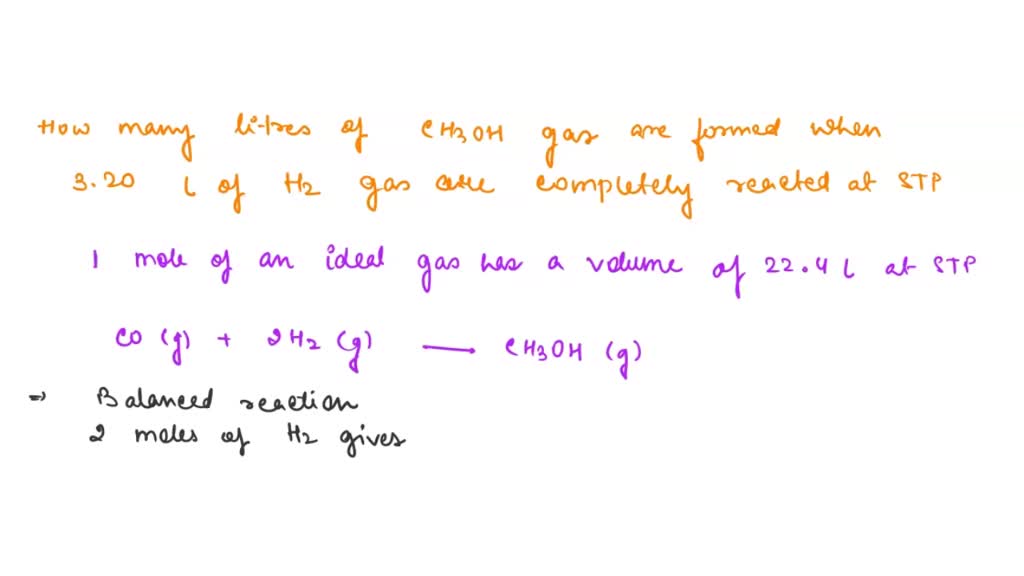 How many litres of CH3OH gas are formed when
3.20 L of H2 gas are completely reacted at STP
1 mole of an ideal gas has a volume of 22.4 L at STP
CO (g) + 2H2 (g) → CH3OH (g)
⇒ Balanced reaction
2 moles of H2 gives